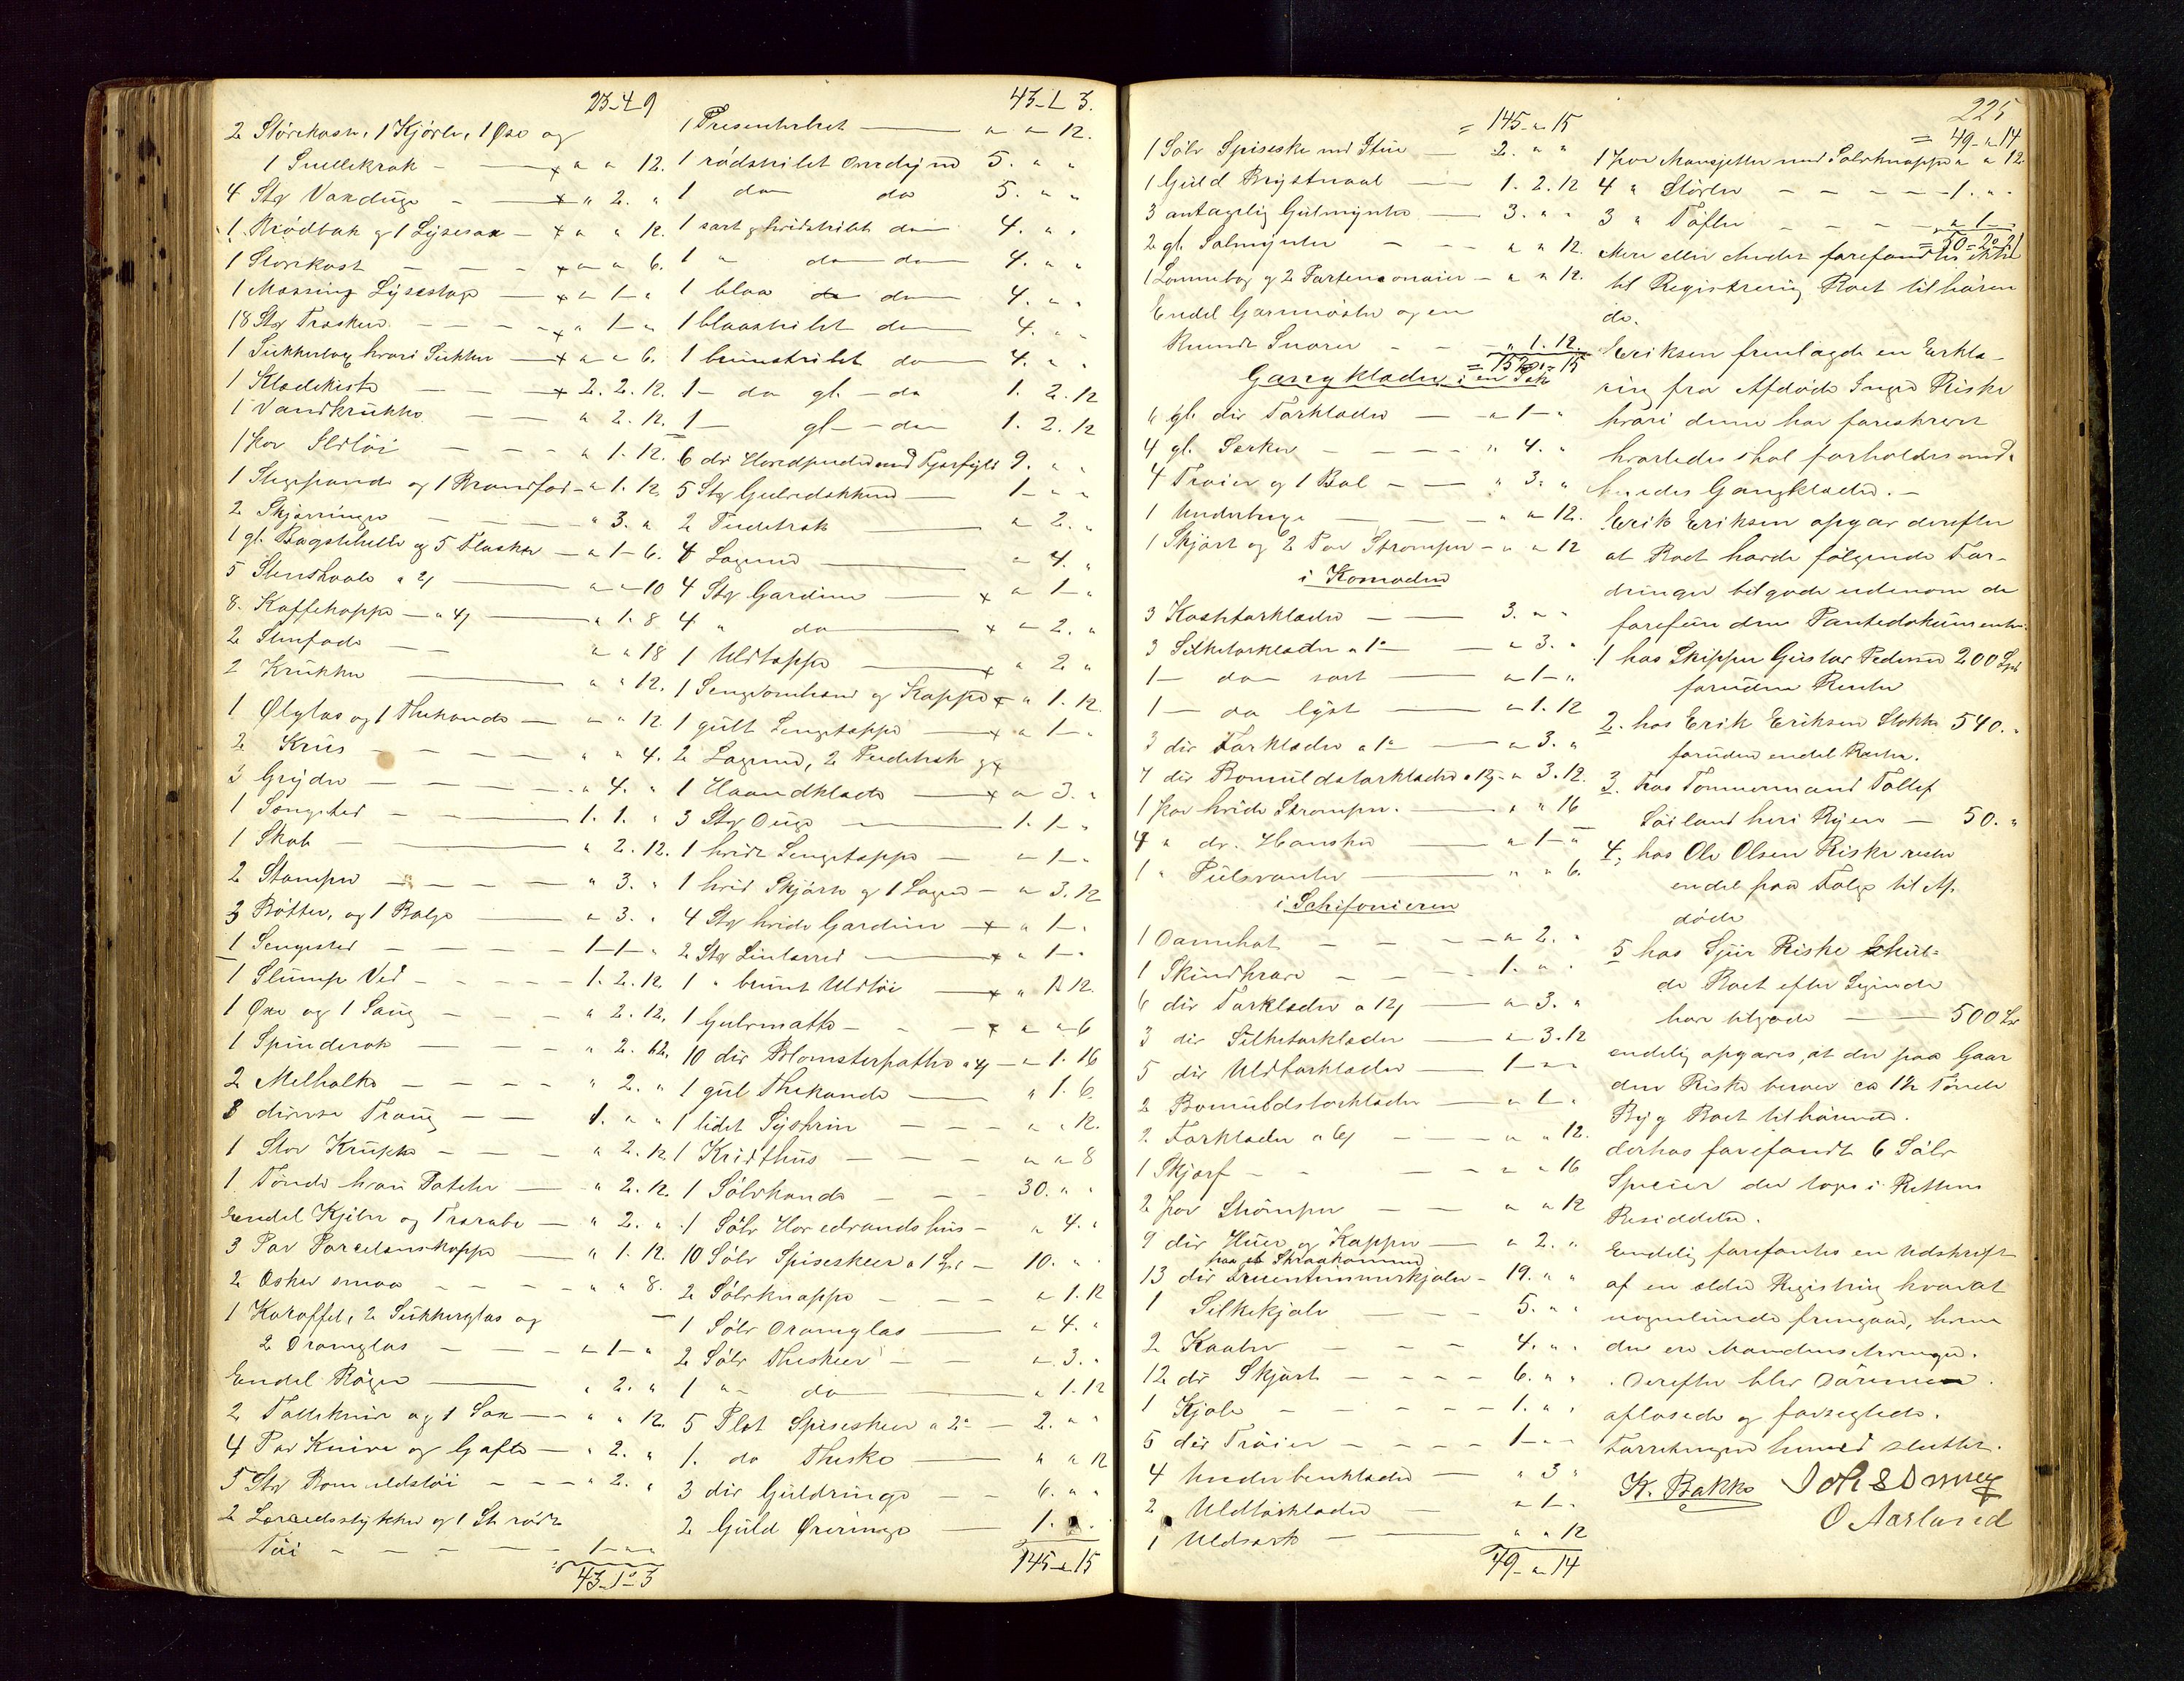 23-4-9
2 Störekasse, 1 Kjörler, 1 Øse og
1 Snellekrak - x " " 12.
4 Stkr Vandugo - x " 2. "
1 Brödbak og 1 Lysesax - x " " 12.
1 Storekost - - - x " " 6.
1 Messing Lysestage - x " 1 - "
18 Stkr Træsker - - - x " 1 - "
1 Sukkerbox hvori Sukker - x " " 6.
1 Klædekiste - x 2. 2. 12.
1 Vandkrukke - - " 2. 12.
1 Par Ildtöi - - - " 1. 12.
1 Stegepande og 1 Brandfad - " 1. 12.
2 Skjæringer - " 3. "
1 gl. Bagstehelle og 5 Flasker - " 1 - 6.
5 Stenskaale a 2/ - " " 10
8 Kaffekopper - a 4/ - " 1. 8
2 Stenfade - - " " 18
2 Krukker - " " 12.
1 Ølglas og 1 Thekande - " " 12
2 Krus - - - " " 4.
3 Gryder - - - - " 4. "
1 Sengsted - - 1. 1. "
1 Skab - " 2. 12.
2 Stamper - - - " 3. "
3 Bötter, og 1 Balje - " 3. "
1 Sengested - - - - 1 - 1 - "
1 Slump Ved - - - 1. 2. 12.
1 Øxe og 1 Saug - - - " 2. 12.
1 Spinderok - - - " 2. 12.
2 Melhalke - - - - " 2. "
8 diverse Traug - - 1. " "
1 Stor Krukke - - - " 2. 12
1 Tönde hvori Poteter - " 2. 12.
Endel Kjiler og Trærabe - " 2. "
3 Par Porcelænskopper - " 1. 12.
2 Æsker smaa - - - " " 8.
1 Karaffel, 2 Sukkerglas og
2 Dramglas - - - " 1 - "
Endel Böger - " 2. "
2 Tælleknive og 1 Sax - " " 12.
4 Par Knive og Gafler - " 2. "
5 Stkr Bomuldstöi - - - " 2. "
2 Lærredsstykker og 1 St rödt
Töi - - - - - 1 - " "
43-1-3
43-1-3.
1 Presenterbret - " " 12.
1 rödstribet Overdyne 5. " "
1 do do 5. " "
1 sort og hvidstribet do 4. " "
1 " do do 4. " "
1 blaa do 4. " "
1 blaastribet do 4. " "
1 brunstribet do 4. " "
1 - do gl - do 1. 2. 12
1 - gl - do 1. 2. 12
6 div Hovedpuder med Fjærfyld 9. " "
5 Stkr Gulvdækken 1 - " "
2 Pudetræk " 2. "
4 Lagener " 4. "
4 Stkr Gardiner - x " 1 - "
4 " do x " 2. "
1 Uldtæppe x " 2 "
1 Sengomhæng og Kappe x " 1. 12.
1 gult Sengetæppe - x " 1 - "
2 Lagener, 2 Pudetræk og x
1 Haandklæde - x " 3. "
3 Stkr Duge - 1. 1 - "
1 hvidt Sengetæppe - " 1 - "
1 hvid Skjört og 1 Lagen - " 3. 12
4 Stkr hvide Gardiner - x " 1 - "
2 Stkr Linlærred x " 1 - "
1 " brunt Uldtöi - x " 1. 12.
1 Gulvmatte - - - x " " 6
10 div Blomsterpotter a 4/ - " 1. 16
1 gul Thekande - " 1. 6.
1 lidet Syskrin - - - " " 12.
1 Kridthus - - - " " 8
1 Sölvkande - - - 30. " "
1 Sölv Hovedvandshus - " 4. "
10 Sölv Spiseskeer a 1 Spd - 10. " "
2 Sölvknapper - - - " 1. 12
1 Sölv Dramglas - " 4. "
2 Sölv Theskeer - - " 3. "
1 " - do " 1. 12
5 Plet Spiseskeer a 2 - 2. " "
1. do Theske " " 12
3 div Guldringe - - 6. " "
2 Guld Øreringe - 1. " "
145-"-15
225
= 145-"-15
1 Sölv Spiseske med Etui - 2. " "
1 Guld Brystnaal - 1. 2. 12
3 antagelig Gulmynter - 3. " "
2 gl. Sølmynter - - - " " 12
1 Lommebog og 2 Portemonaier - " " 12.
Endel Garnnöster og en
Bundt Snorer - - - " 1. 12.
= 152-"-15
Gangklæder i en Sæk
6 gl. div Törklæder - " 1 - "
4 gl. Særker - - - - " 4. "
4 Tröier og 1 Bol - - " 3. "
1 Underbuxe - " " 12.
1 Skjört og 2 Par Strömper - " " 12
i Komoden
3 Kastetörklæder - 3. " "
3 Silketörklæder a 1 - - " 3. "
1 - do sort - " 1 - "
1 - do lyst - " 1. 12
3 div Törklæder a 1 - " 3. "
7 div Bomuldstørklæder a 12/ - " 3. 12.
1 Par hvide Strömper - " " 16
4 " div. Hansker - " 1 - "
1 " Pulsvanter - " " 6.
i Schifonieren
1 Damehat - - - - " 2. "
1 Skindkrave - - - 1. " "
6 div Törklæder a 12/ - " 3. "
3 div Silketörklæder - " 3. 12
5 div Uldtörklæder - 1 - " "
2 Bomuldstörklæder - " 1 - "
2 Forklæder a 6/ - - - " " 12.
1 Skjærf - - - - " " 16
2 Par Strömper - - " " 12
9 div Huer og Kapper - " 2. "
paa et Skraakammer
13 div Fruentimmerkjoler - 19. " "
1 Silkekjole - - - 5. " "
2 Kaaber - - - 4. " "
12 div Skjört - - - - 6. " "
1 Kjole - - - - - 1. " "
5 div Tröier - - - - 1 - " -
4 Underbenklæder - " 3 "
2 Uldtörklæder - " 1 - "
1 Uldsærk - " " 12
49-"-14
= 49-"-14
1 Par Mansjetter med Sølvknapper " " 12
4 " Störler - - - - 1. " -
3 " Töfler - - - - " 1 -
= 50 = 2 = 2
Mere eller Andet forefandtes ikke
til Registrering Boet tilhören
de.
Eriksen fremlagde en Erklæ-
ring fra Afdöde Inger Riske
hvori denne har foreskrevet
hvorledes skal forholdes med
hendes Gangklæder. -
Erik Eriksen opgav derefter
at Boet havde fölgende For-
dringer tilgode udenom de
forefundne Pantedokumenter.
1 hos Skipper Gustav Pedersen 200 Spd
foruden Renter
2. hos Erik Eriksen Stokke 540. "
foruden endel Renter.
3. hos Tommermand Tollef
Soiland heri Byen - 50. "
4, hos Ole Olsen Riske rester
endel paa Folge til Af-
døde
5 hos Sjur Riske skul-
de Boet efter Sigende
have tilgode - 500 Spd
endelig opgaves, at der paa Gaar
den Riske beroer ca 1½ Tönde
Byg Boet tilhörende.
derhos forefandt 6 Sölv
Speсier der toges i Rettens
Besiddelse.
Endelig forefantes en Udskrift
af en ældre Registrering hvoraf
nogenlunde fremgaar, hvem
der ere Mandens Arvinger.
Derefter blev Dörene
aflaasede og forseglede.
Forretningen hermed sluttet.
K. Bakke
O Aarland